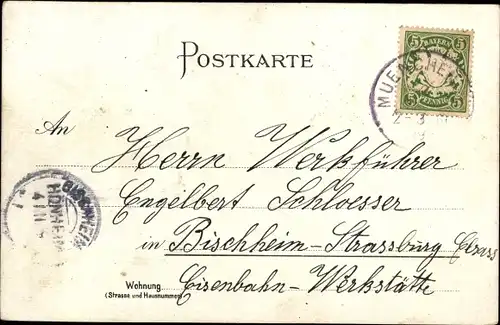 POSTKARTE
5 BAYERN 5
5 PFENNIG 5
MUENCHEN
An
Herrn Werkführer
Engelbert Schloesser
in Bischheim-Strassburg Elsass
Eisenbahn-Werkstätte
Wohnung
(Strasse und Hausnummer)